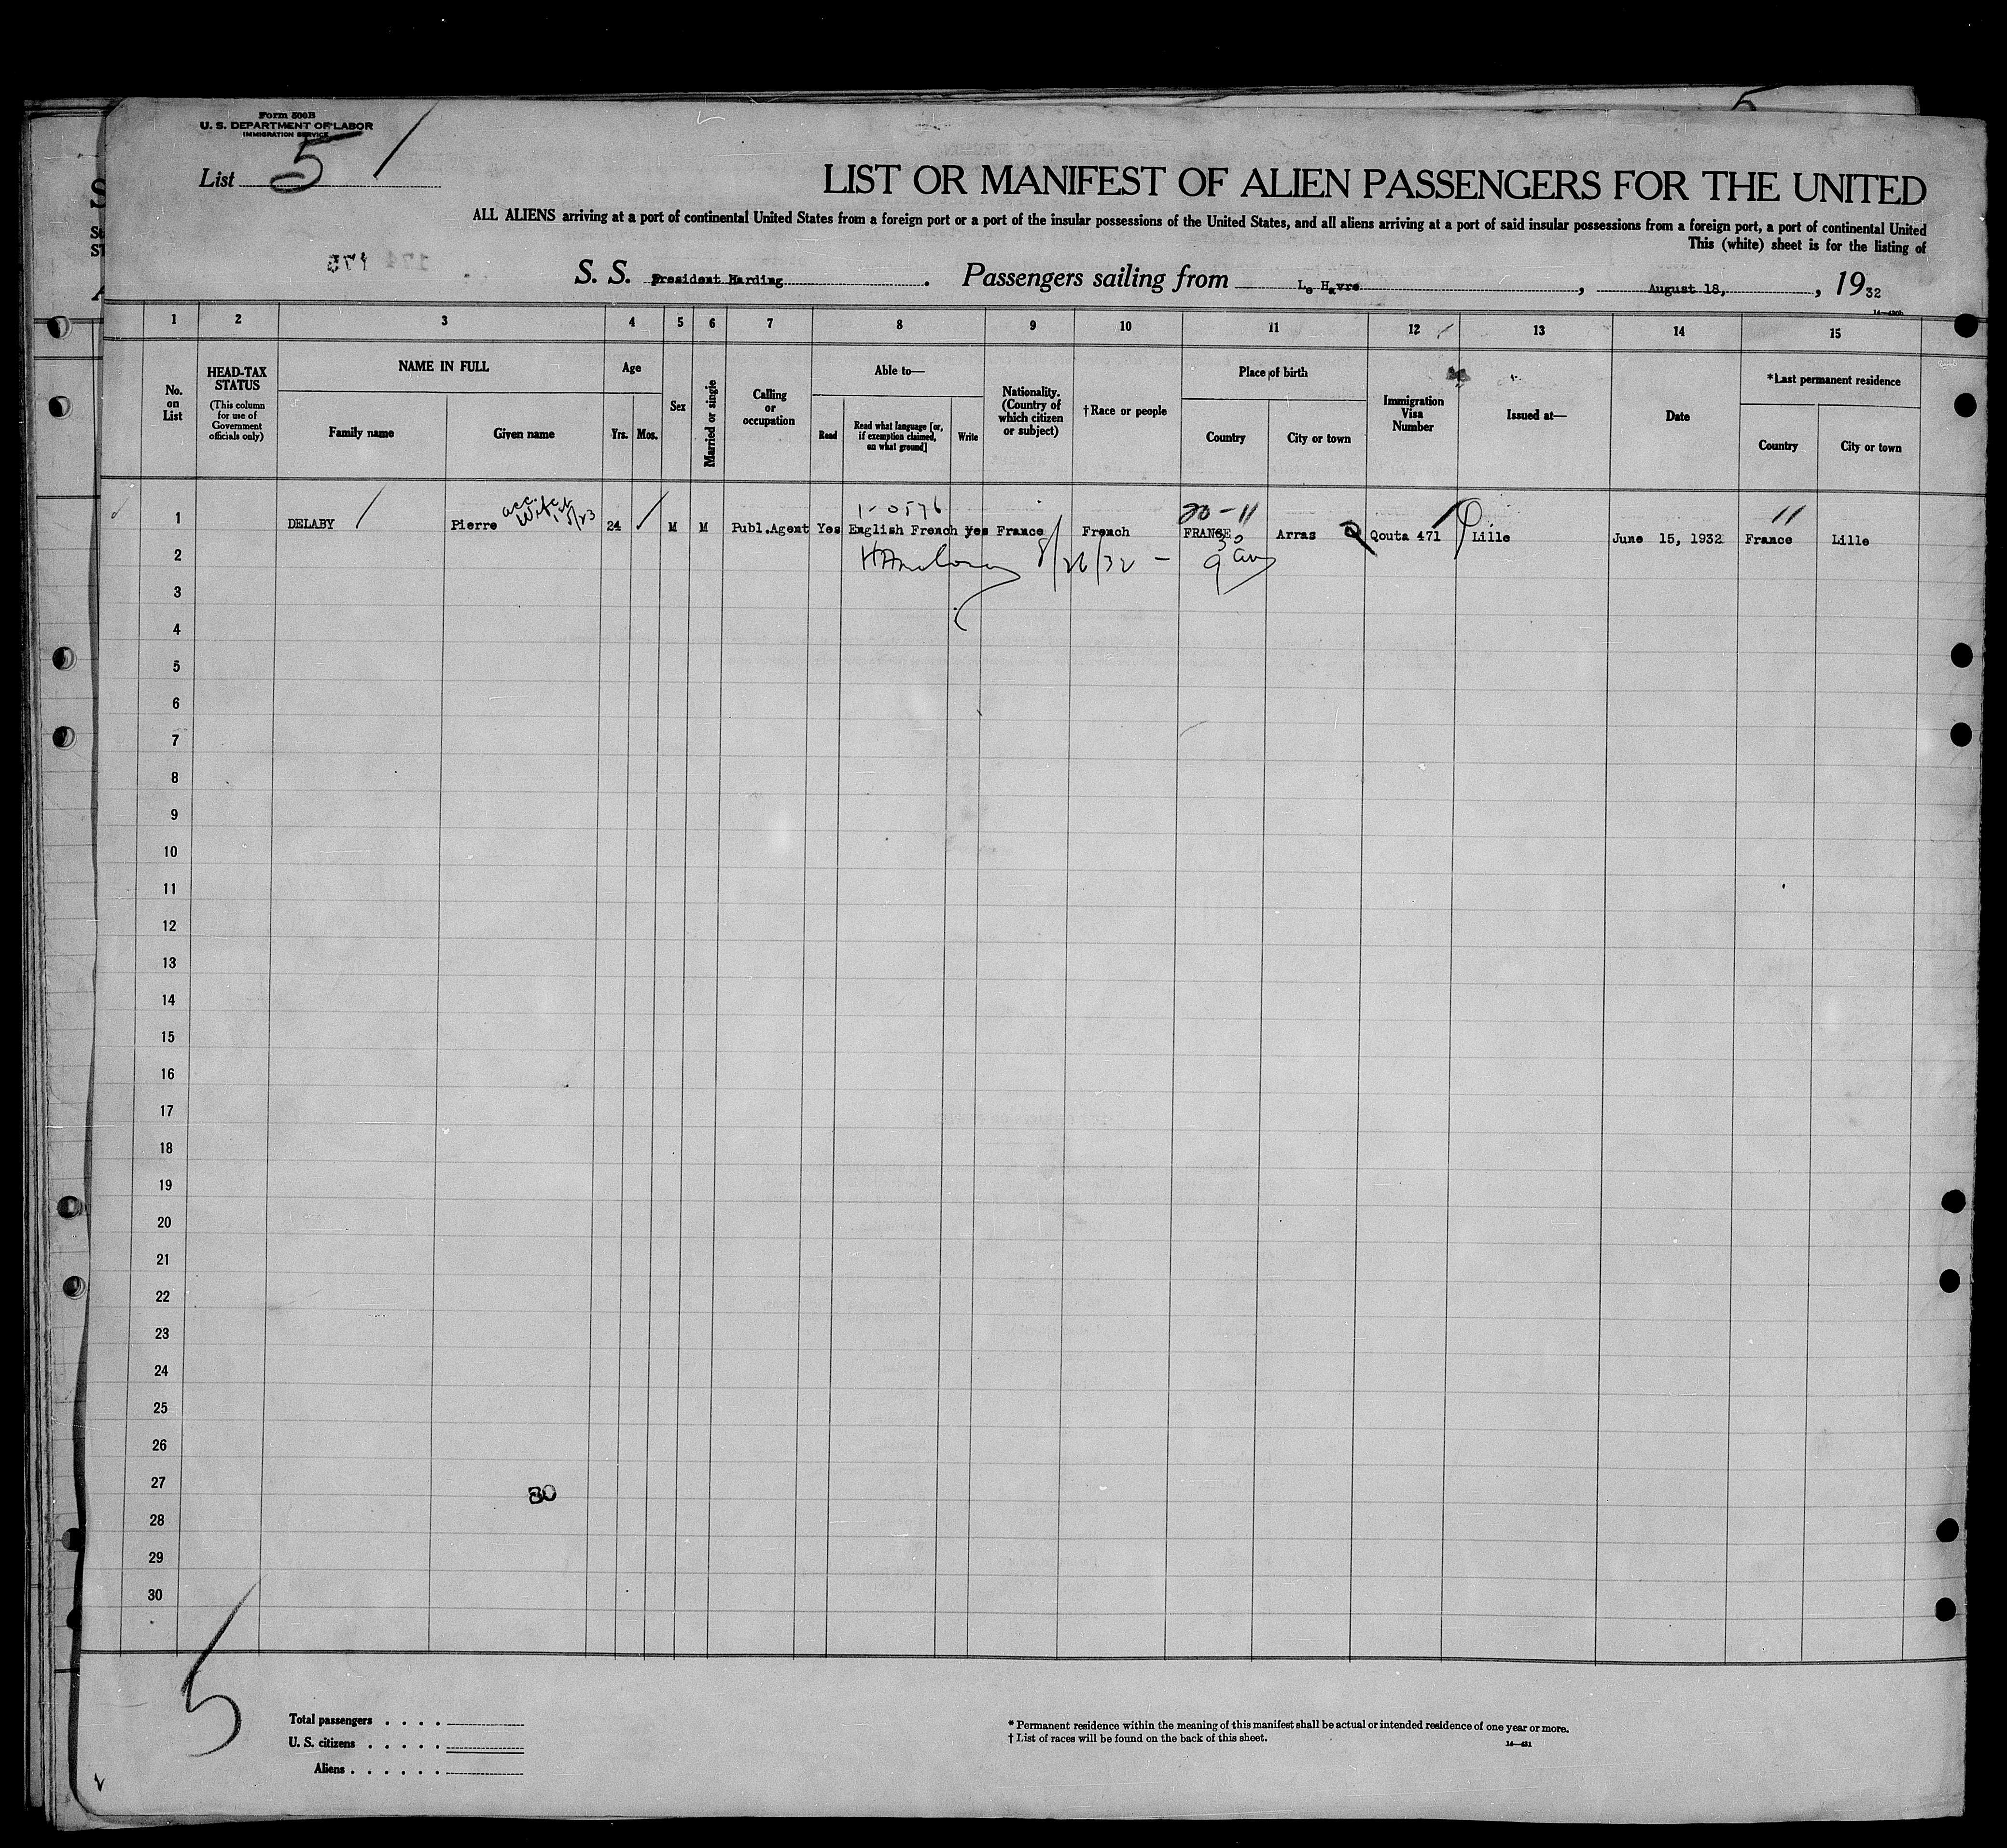 Form 500B
U. S. DEPARTMENT OF LABOR
IMMIGRATION SERVICE
List 5
LIST OR MANIFEST OF ALIEN PASSENGERS FOR THE UNITED
ALL ALIENS arriving at a port of continental United States from a foreign port or a port of the insular possessions of the United States, and all aliens arriving at a port of said insular possessions from a foreign port, a port of continental United
This (white) sheet is for the listing of
S. S. President Harding. Passengers sailing from Le Havre, August 18, , 1932
1 2 3 4 5 6 7 8 9 10 11 12 13 14 15
No. on List
HEAD-TAX STATUS (This column for use of Government officials only)
NAME IN FULL
Family name
Given name
Age
Yrs.
Mos.
Sex
Married or single
Calling or occupation
Able to—
Read
Read what language [or, if exemption claimed, on what ground]
Write
Nationality. (Country of which citizen or subject)
†Race or people
Place of birth
Country
City or town
Immigration Visa Number
Issued at—
Date
*Last permanent residence
Country
City or town
acc. Wife
20-11
11
1 DELABY Pierre 24 M M Publ.Agent Yes English French yes France French FRANCE Arras Qouta 471 Lille June 15, 1932 France Lille
2 8/26/32 -
3
4
5
6
7
8
9
10
11
12
13
14
15
16
17
18
19
20
21
22
23
24
25
26
27
30
28
29
30
5
Total passengers . . . .
U. S. citizens . . . . .
Aliens . . . . . .
* Permanent residence within the meaning of this manifest shall be actual or intended residence of one year or more.
† List of races will be found on the back of this sheet.
14—431